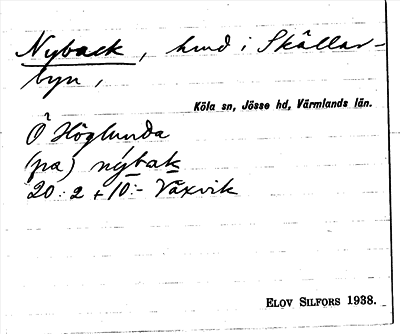 Nyback, hmd i Skållar-
byn,
Köla sn, Jösse hd, Värmlands län.
Ö Höglunda
(pa) nybak
20:2 + 10:- Växvik
ELOV SILFORS 1938.